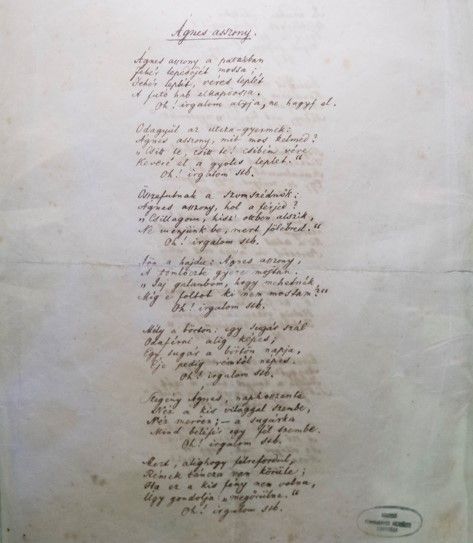 Ágnes asszony.
Ágnes asszony a patakban
Fehér lepedőjét mossa;
Fehér leplét, véres leplét
A futó hab elkapdossa.
Oh! irgalom atyja, ne hagyj el.
Odagyűl az utcza-gyermek:
Ágnes asszony, mit mos kelmed?
„Csitt te, csitt te! csibém vére
Keveré el a gyolcs leplet.“
Oh! irgalom stb.
Összefutnak a szomszédnők:
Ágnes asszony, hol a férjed?
„Csillagom, hisz ottben alszik,
Ne menjünk be, mert fölébred.“
Oh! irgalom stb.
Jön a hajdu: Ágnes asszony,
A tömlöczbe gyere mostan.
„Jaj galambom, hogy mehetnék,
Míg e foltot ki nem mostam?“
Oh! irgalom stb.
Mély a börtön: egy sugár szál
Odaférni alig képes;
Egy sugár a börtön napja,
Éje pedig rémtől népes.
Oh! irgalom stb.
Szegény Ágnes, naphosszanta
Néz a kis világgal szembe,
Néz merően; — a sugárka
Mind belefér egy fél szembe.
Oh! irgalom stb.
Mert, alighogy félrefordul,
Rémek táncza van körűle;
Ha ez a kis fény nem volna,
Úgy gondolja „megőrülne.“
Oh! irgalom stb.